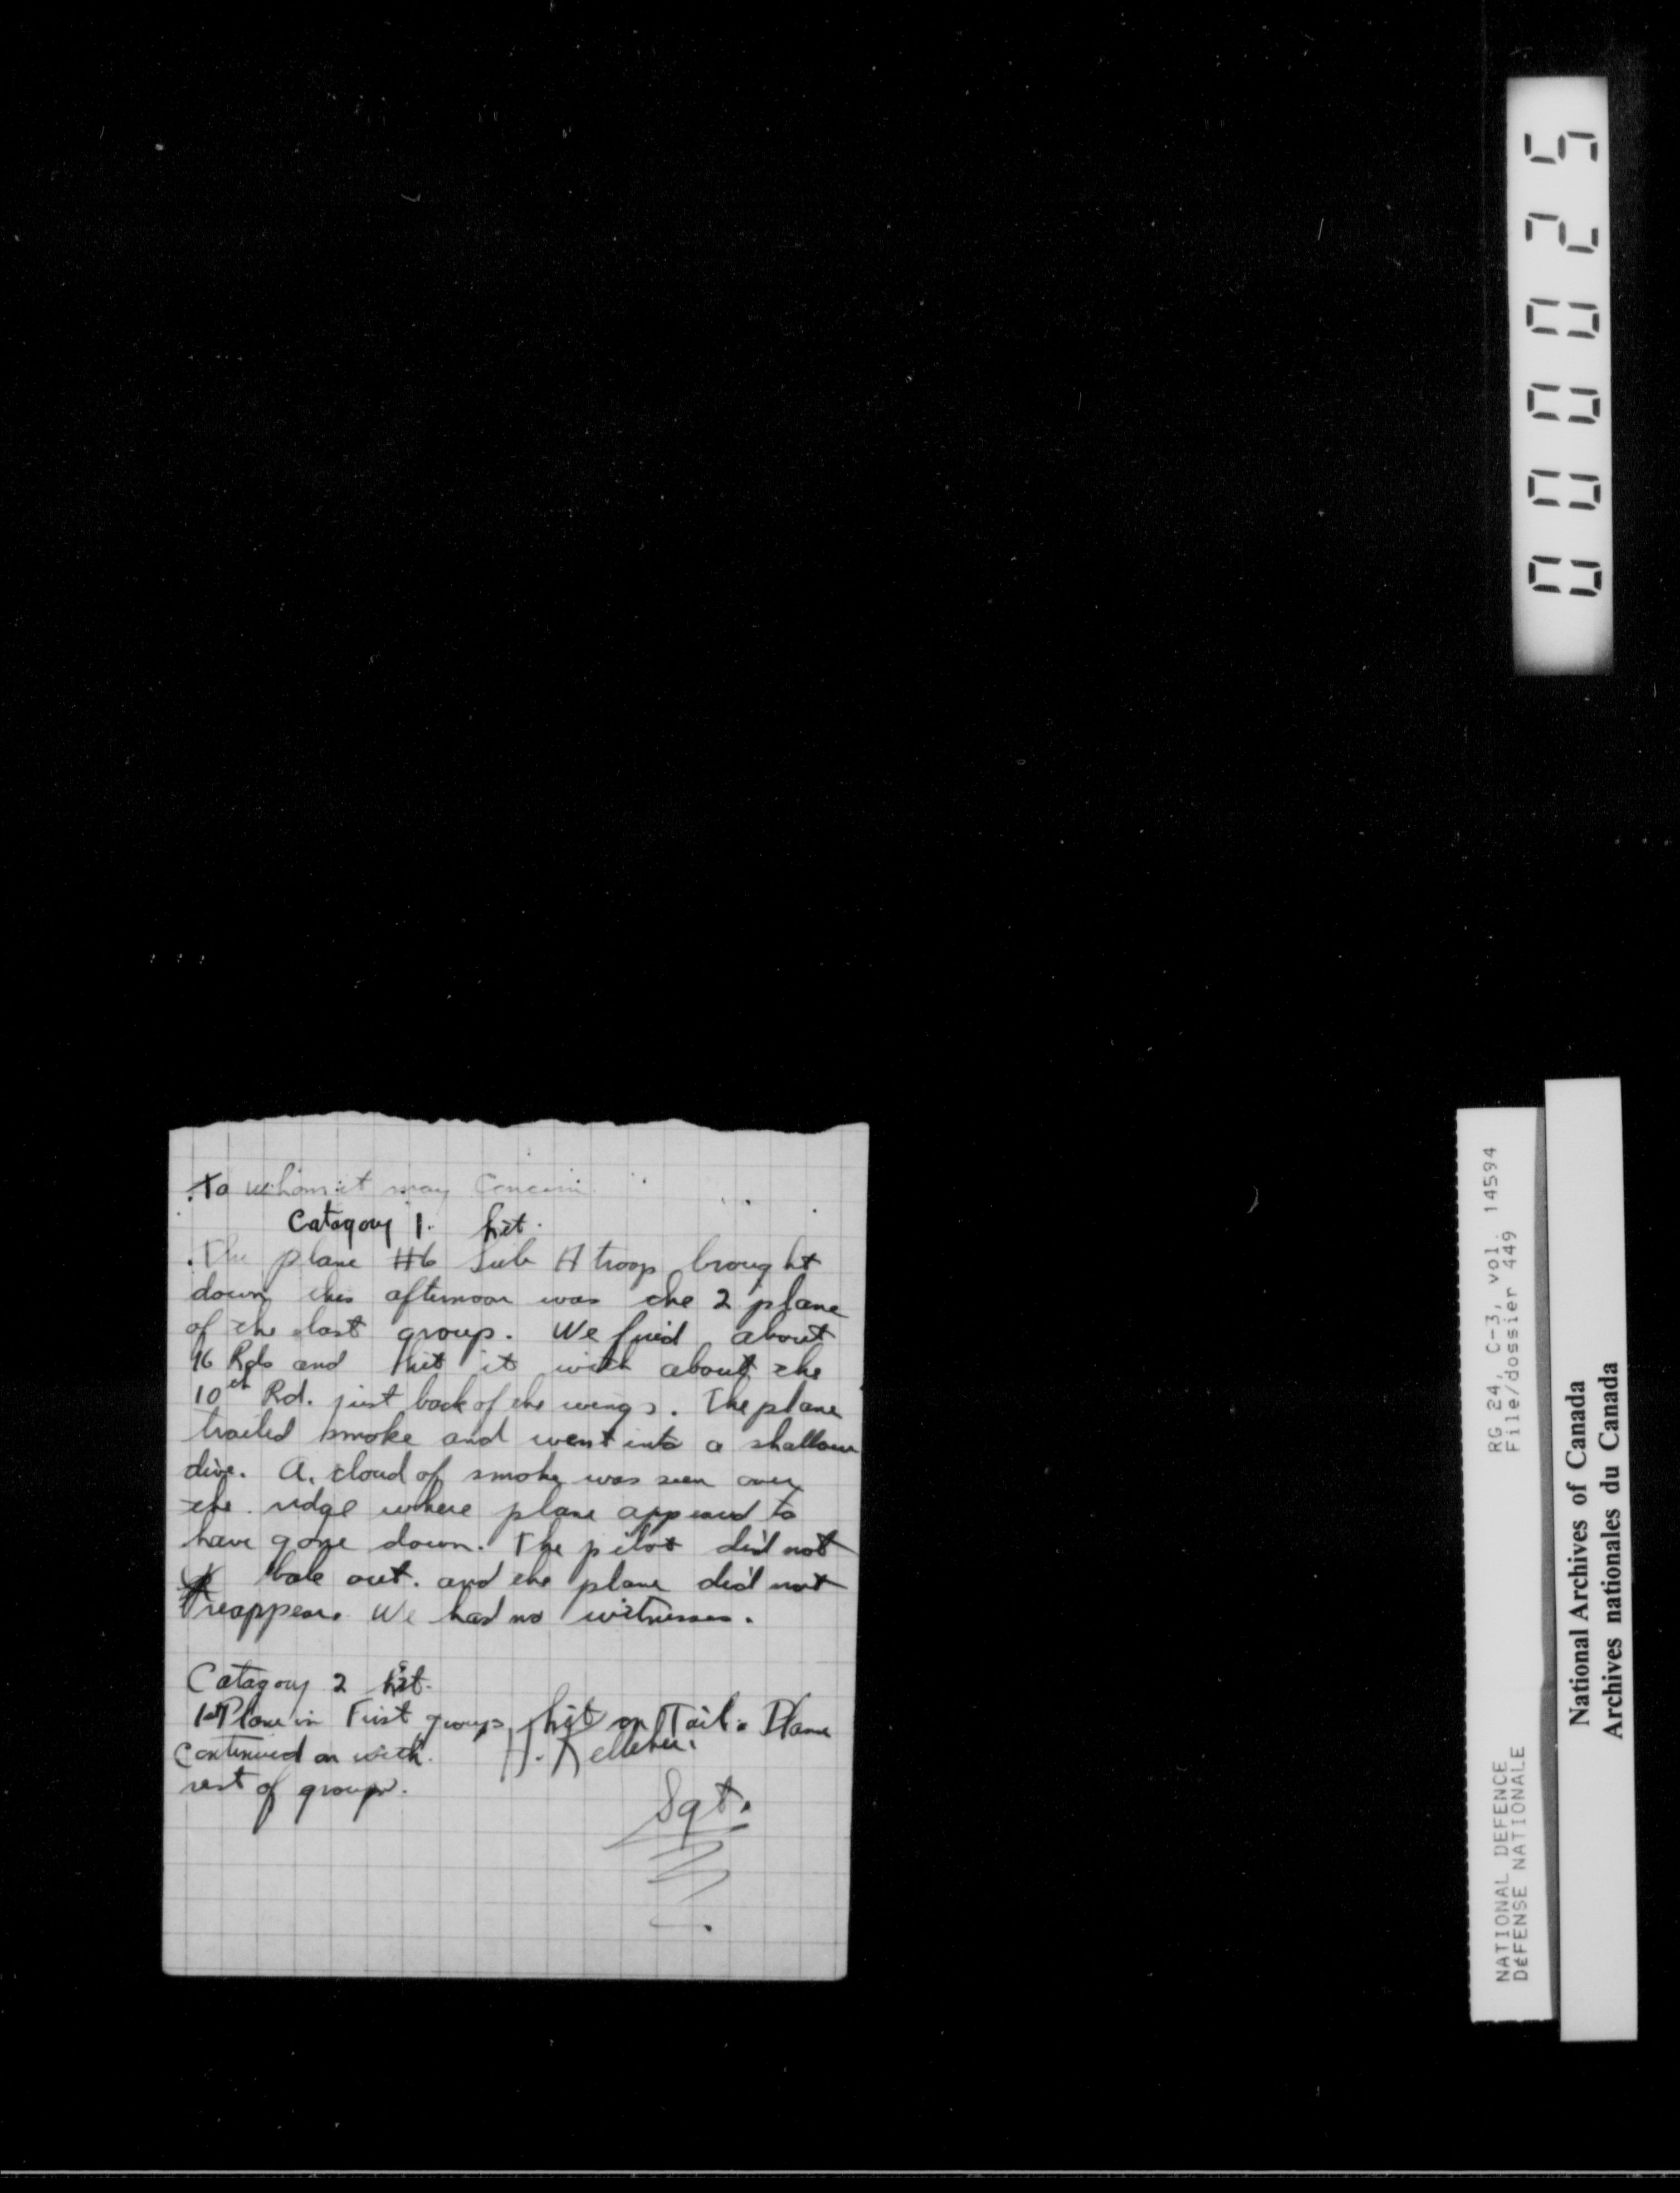 To whom it may Concern
Catagory 1. hit.
The plane #6 Sub A troop brought
down this afternoon was the 2 plane
of the last group. We fired about
16 Rds and hit it with about the
10th Rd. just back of the wings. The plane
trailed smoke and went into a shallow
dive. A. cloud of smoke was seen over
the ridge where plane appeared to
have gone down. The pilot did not
bale out. and the plane did not
reappear. We had no witnesses.
Catagory 2 hit.
1st Plane in First group, hit on Tail. Plane
continued on with
rest of group.
H. Kelleher.
Sgt.
000025
RG 24, C-3, vol. 14594
File/dossier 449
NATIONAL DEFENCE
DÉFENSE NATIONALE
National Archives of Canada
Archives nationales du Canada